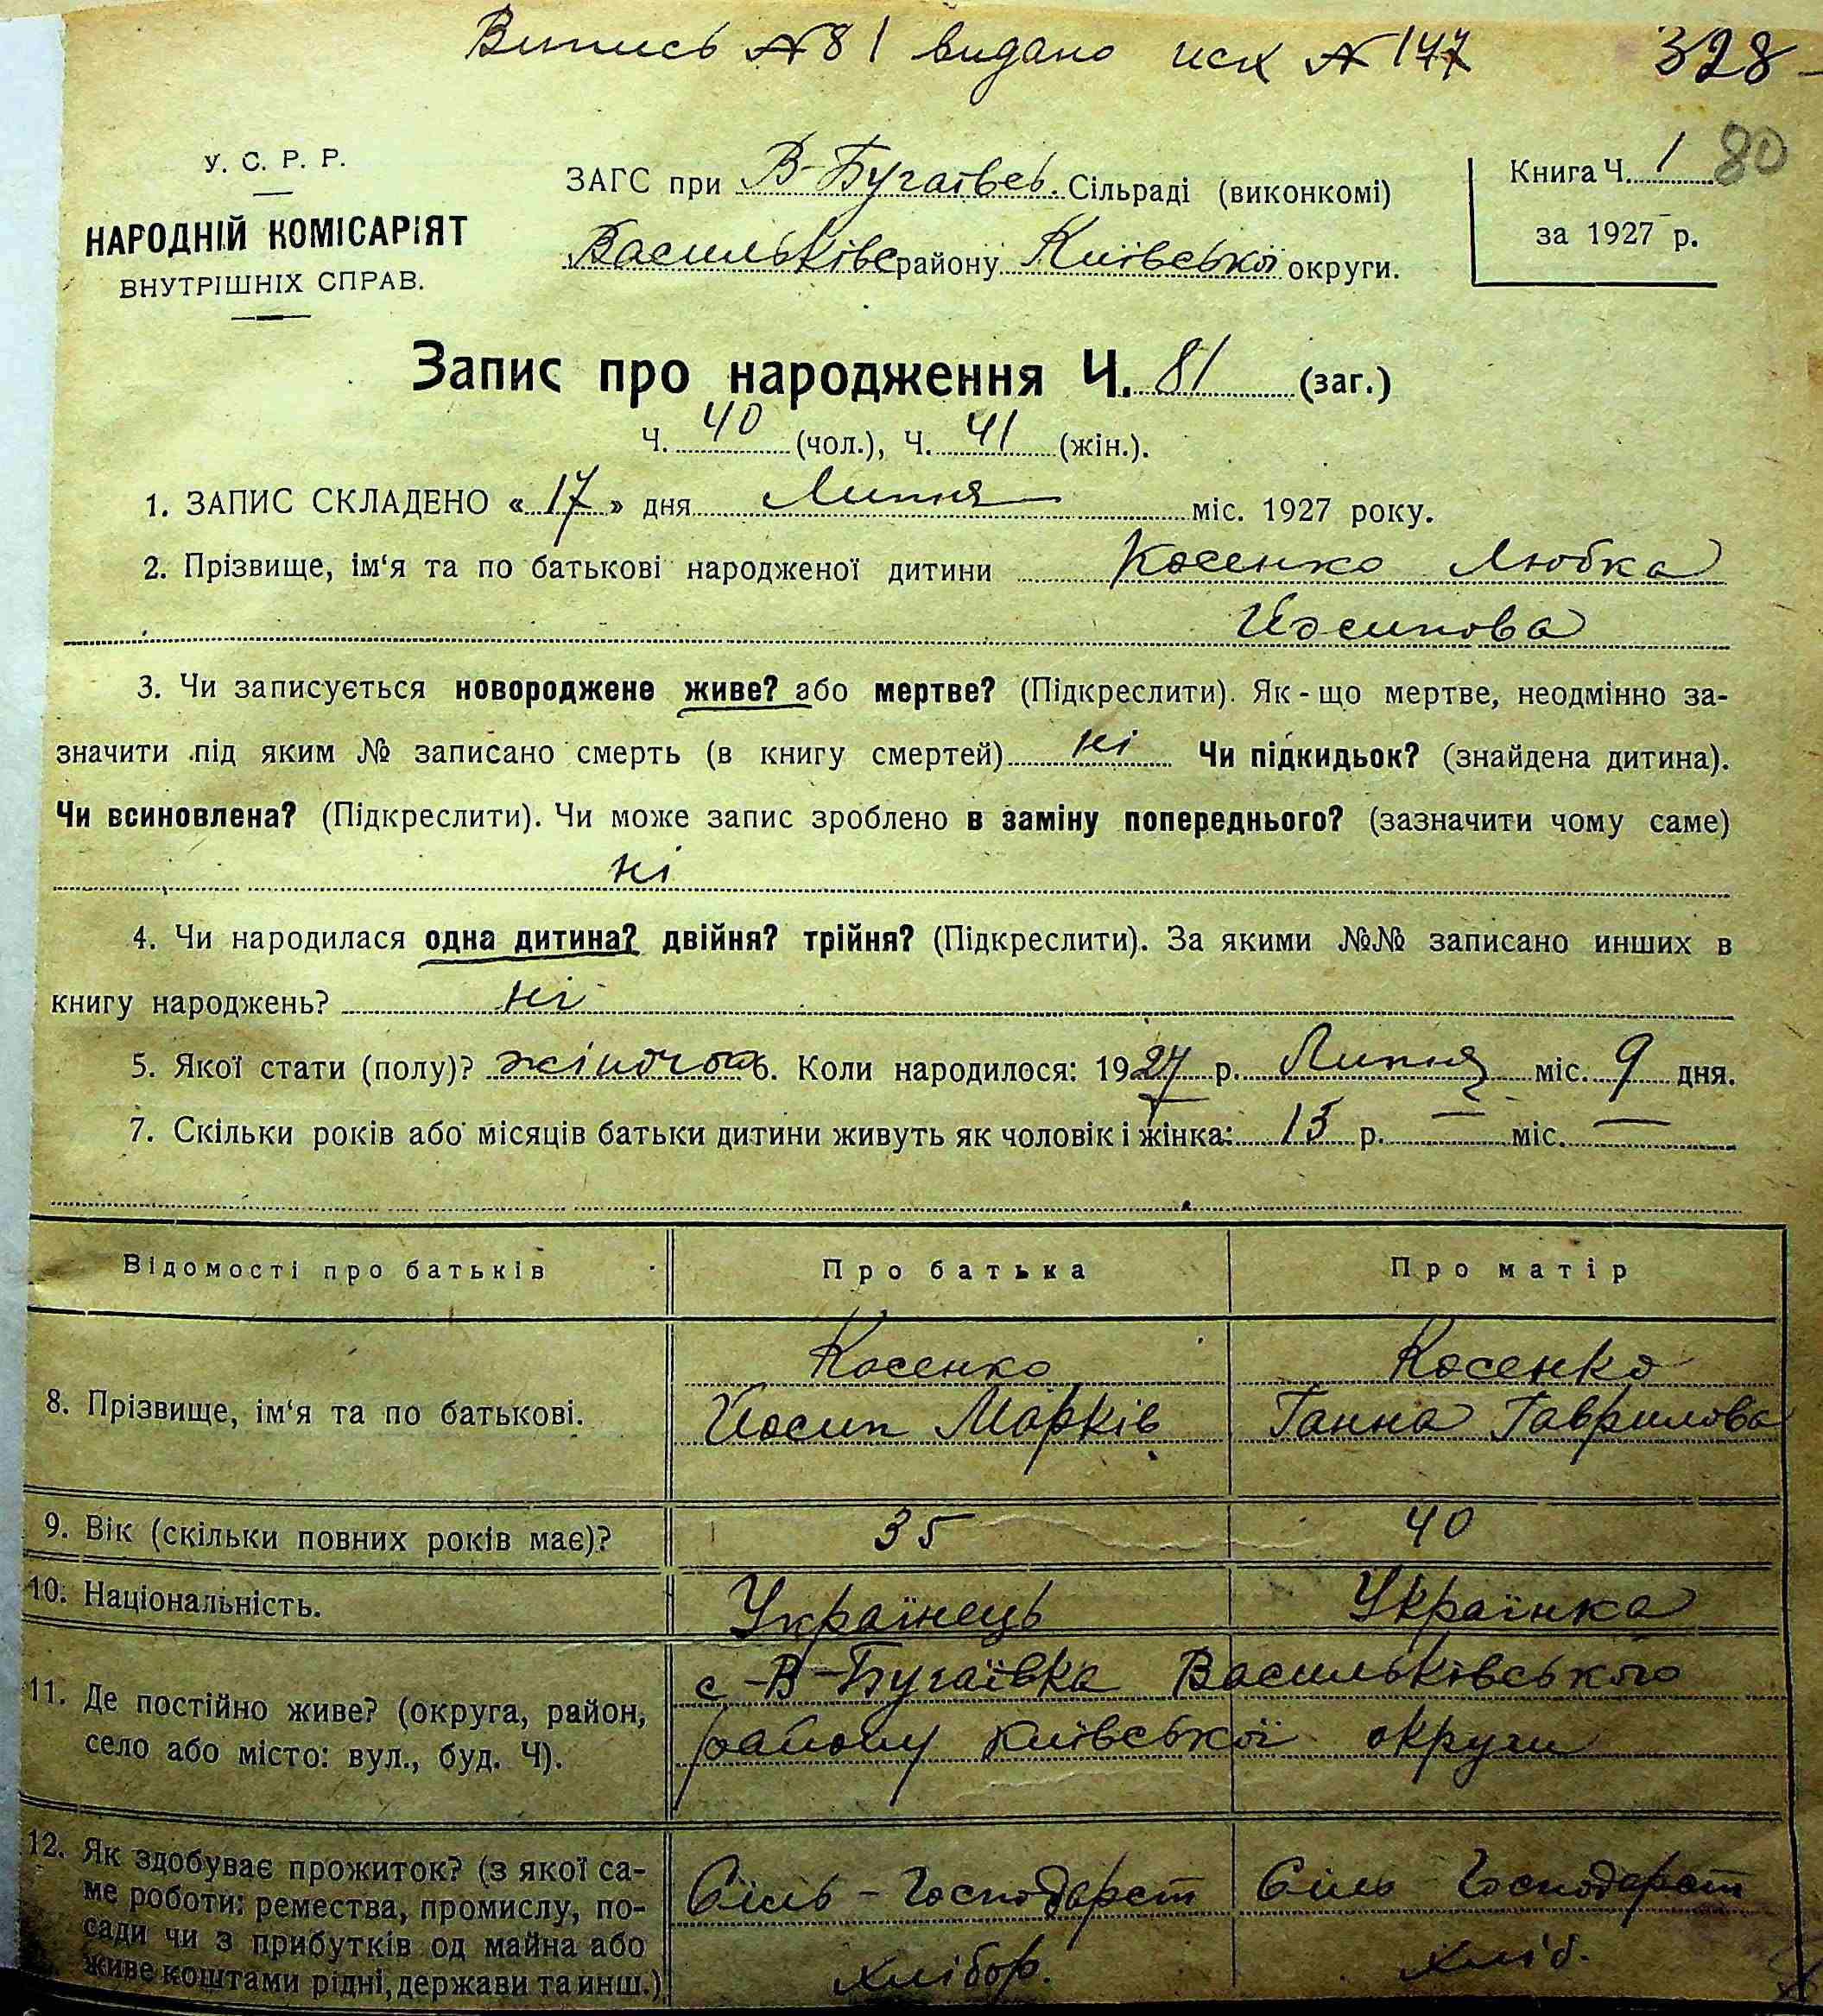 Випись №81 видано исх №147 328
У. С. Р. Р.
НАРОДНІЙ КОМІСАРІЯТ
ВНУТРІШНІХ СПРАВ.
ЗАГС при В-Бугаївсь. Сільраді (виконкомі)
Васильківс району Київської округи.
Книга Ч. 1 80
за 1927 р.
Запис про народження Ч. 81 (заг.)
Ч. 40 (чол.), Ч. 41 (жін.).
1. ЗАПИС СКЛАДЕНО «17» дня Липня міс. 1927 року.
2. Прізвище, ім‘я та по батькові народженої дитини Косенко Любка
Иосипова
3. Чи записується новороджене живе? або мертве? (Підкреслити). Як-що мертве, неодмінно за-
значити під яким № записано смерть (в книгу смертей) ні Чи підкидьок? (знайдена дитина).
Чи всиновлена? (Підкреслити). Чи може запис зроблено в заміну попереднього? (зазначити чому саме)
ні
4. Чи народилася одна дитина? двійня? трійня? (Підкреслити). За якими №№ записано инших в
книгу народжень? ні
5. Якої стати (полу)? жіноча 6. Коли народилося: 1927 р. Липня міс. 9 дня.
7. Скільки років або місяців батьки дитини живуть як чоловік і жінка: 15 р. — міс. —
Відомості про батьків Про батька Про матір
8. Прізвище, ім‘я та по батькові.
Косенко Косенко
Иосип Марків Ганна Гаврилова
9. Вік (скільки повних років має)? 35 40
10. Національність. Українець Українка
11. Де постійно живе? (округа, район,
село або місто: вул., буд. Ч).
с-В-Бугаївка Васильківського
району Київської округи
12. Як здобуває прожиток? (з якої са-
ме роботи: ремества, промислу, по-
сади чи з прибутків од майна або
живе коштами рідні, держави та инш.)
Сіль-Господарст Сіль Господарст
хлібор. хліб.